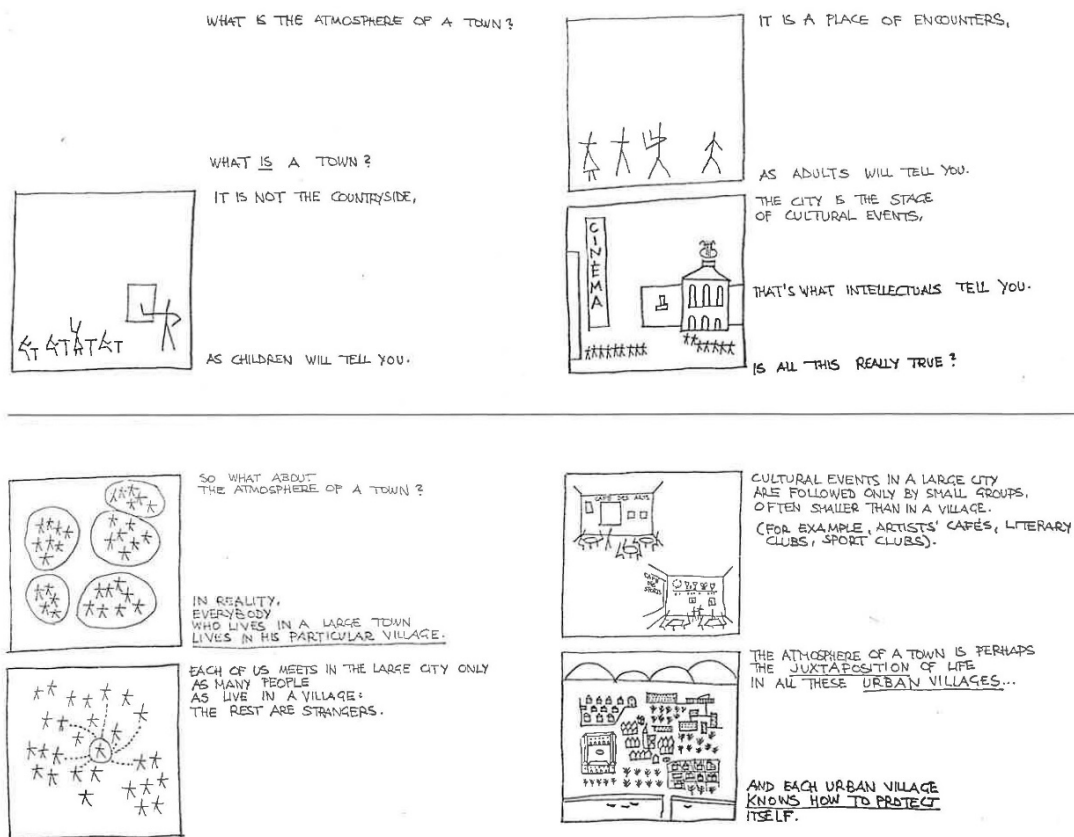 WHAT IS THE ATMOSPHERE OF A TOWN?
WHAT IS A TOWN?
IT IS NOT THE COUNTRYSIDE,
AS CHILDREN WILL TELL YOU.
IT IS A PLACE OF ENCOUNTERS,
AS ADULTS WILL TELL YOU.
THE CITY IS THE STAGE
OF CULTURAL EVENTS,
CINÉMA
THAT'S WHAT INTELLECTUALS TELL YOU.
IS ALL THIS REALLY TRUE?
SO WHAT ABOUT
THE ATMOSPHERE OF A TOWN?
IN REALITY,
EVERYBODY
WHO LIVES IN A LARGE TOWN
LIVES IN HIS PARTICULAR VILLAGE.
EACH OF US MEETS IN THE LARGE CITY ONLY
AS MANY PEOPLE
AS LIVE IN A VILLAGE:
THE REST ARE STRANGERS.
CULTURAL EVENTS IN A LARGE CITY
ARE FOLLOWED ONLY BY SMALL GROUPS,
OFTEN SMALLER THAN IN A VILLAGE.
(FOR EXAMPLE, ARTISTS' CAFÉS, LITERARY
CLUBS, SPORT CLUBS).
CAFÉ DES ARTS
CAFÉ
DES
SPORTS
THE ATMOSPHERE OF A TOWN IS PERHAPS
THE JUXTAPOSITION OF LIFE
IN ALL THESE URBAN VILLAGES...
AND EACH URBAN VILLAGE
KNOWS HOW TO PROTECT
ITSELF.